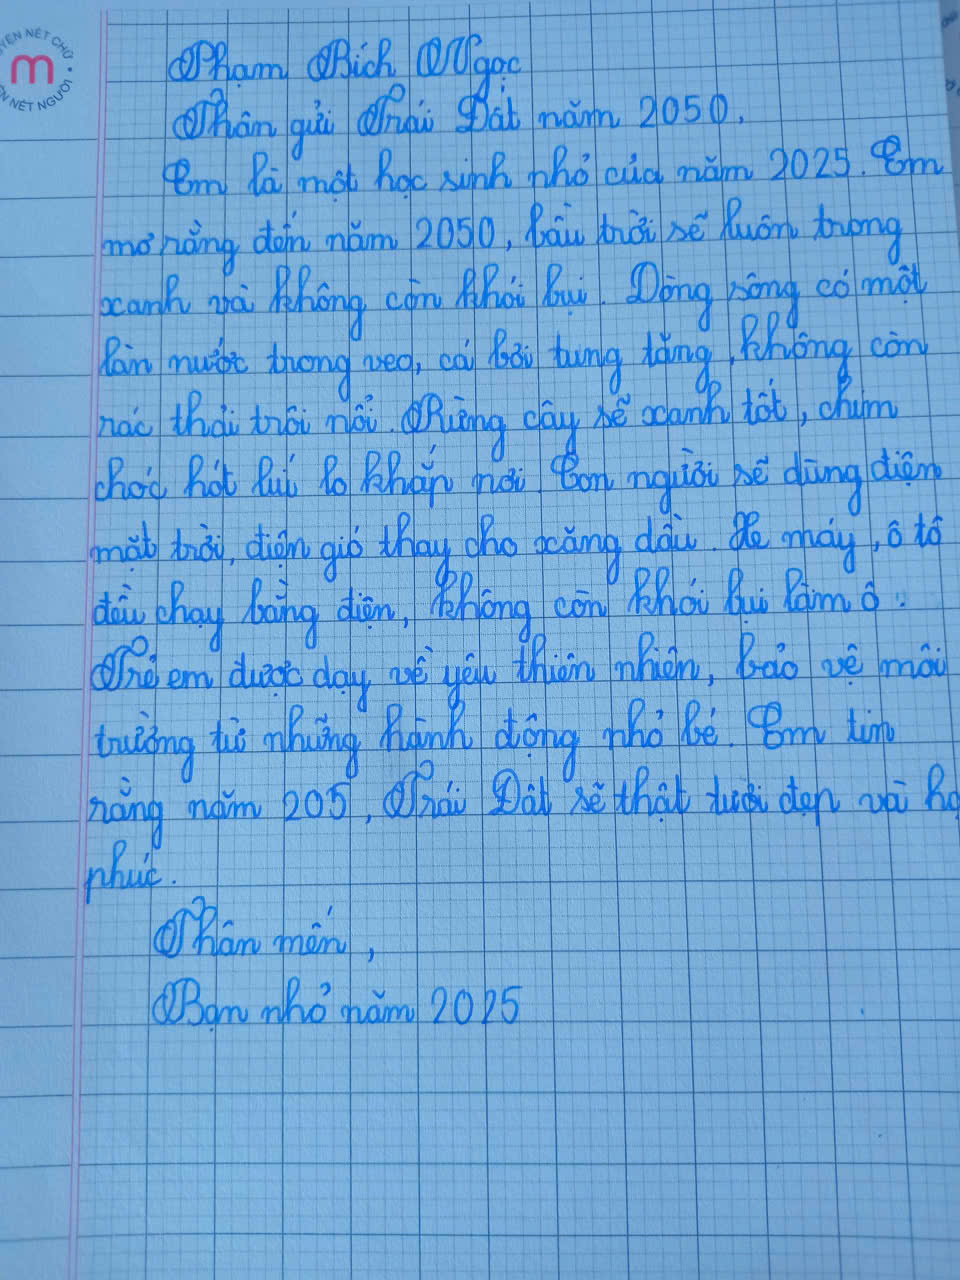 YỆN NÉT CHỮ
m
ÈN NẾT NGƯỜI
Phạm Bích Ngọc
Thân gửi Trái Đất năm 2050.
Em là một học sinh nhỏ của năm 2025. Em
mơ rằng đến năm 2050, bầu trời sẽ luôn trong
xanh và không còn khói bụi. Dòng sông có một
làn nước trong veo, cá bơi tung tăng, không còn
rác thải trôi nổi. Rừng cây sẽ xanh tốt, chim
chóc hót líu lo khắp nơi. Con người sẽ dùng điện
mặt trời, điện gió thay cho xăng dầu. Xe máy, ô tô
đều chạy bằng điện, không còn khói bụi làm ô.
Trẻ em được dạy về yêu thiên nhiên, bảo vệ môi
trường từ những hành động nhỏ bé. Em tin
rằng năm 205, Trái Đất sẽ thật tươi đẹp và hạ
phúc.
Thân mến,
Bạn nhỏ năm 2025